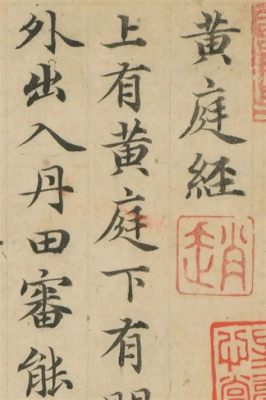 黄庭経
趙
上有黄庭下有
外出入丹田審能